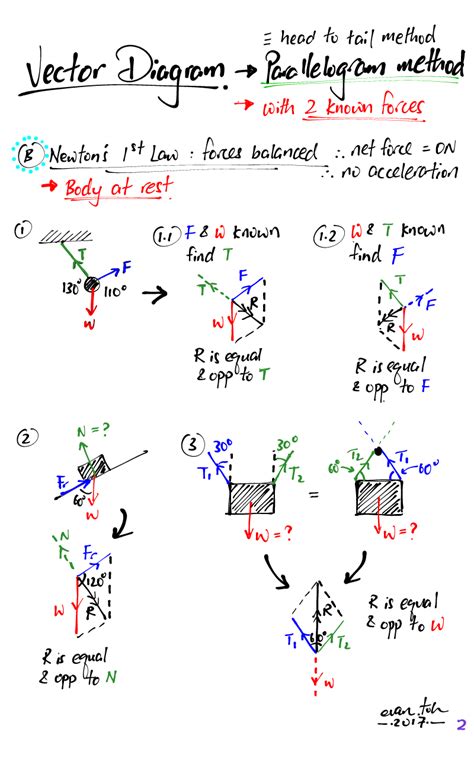 ≡ head to tail method
Vector Diagram → Parallelogram method
→ with 2 known forces
B Newton's 1st Law : forces balanced ∴ net force = 0N
→ Body at rest ∴ no acceleration
1
T
F
130° 110°
W
1.1 F & W known
find T
T
F
R
W
R is equal
& opp to T
1.2 W & T known
find F
T
F
R
W
R is equal
& opp to F
2
N = ?
Fr
60°
W
N
Fr
120°
W
R
R is equal
& opp to N
3
30° 30°
T1 T2
W = ?
=
T2 T1
60° 60°
W = ?
R
T1 60° T2
W
R is equal
& opp to W
evan.toh
2017.
2